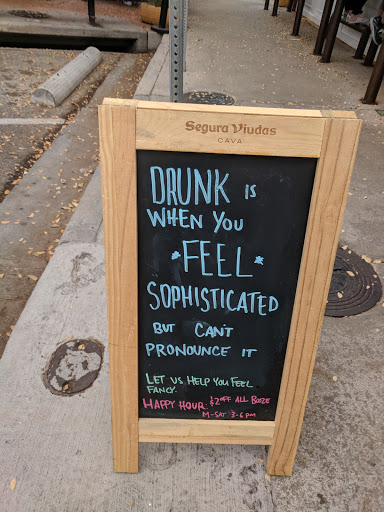 Segura Viudas
CAVA
DRUNK IS
WHEN YOU
*FEEL*
SOPHISTICATED
BUT CAN'T
PRONOUNCE IT
LET US HELP YOU FEEL
FANCY.
HAPPY HOUR: $2 OFF ALL BOOZE
M-SAT 3-6 PM